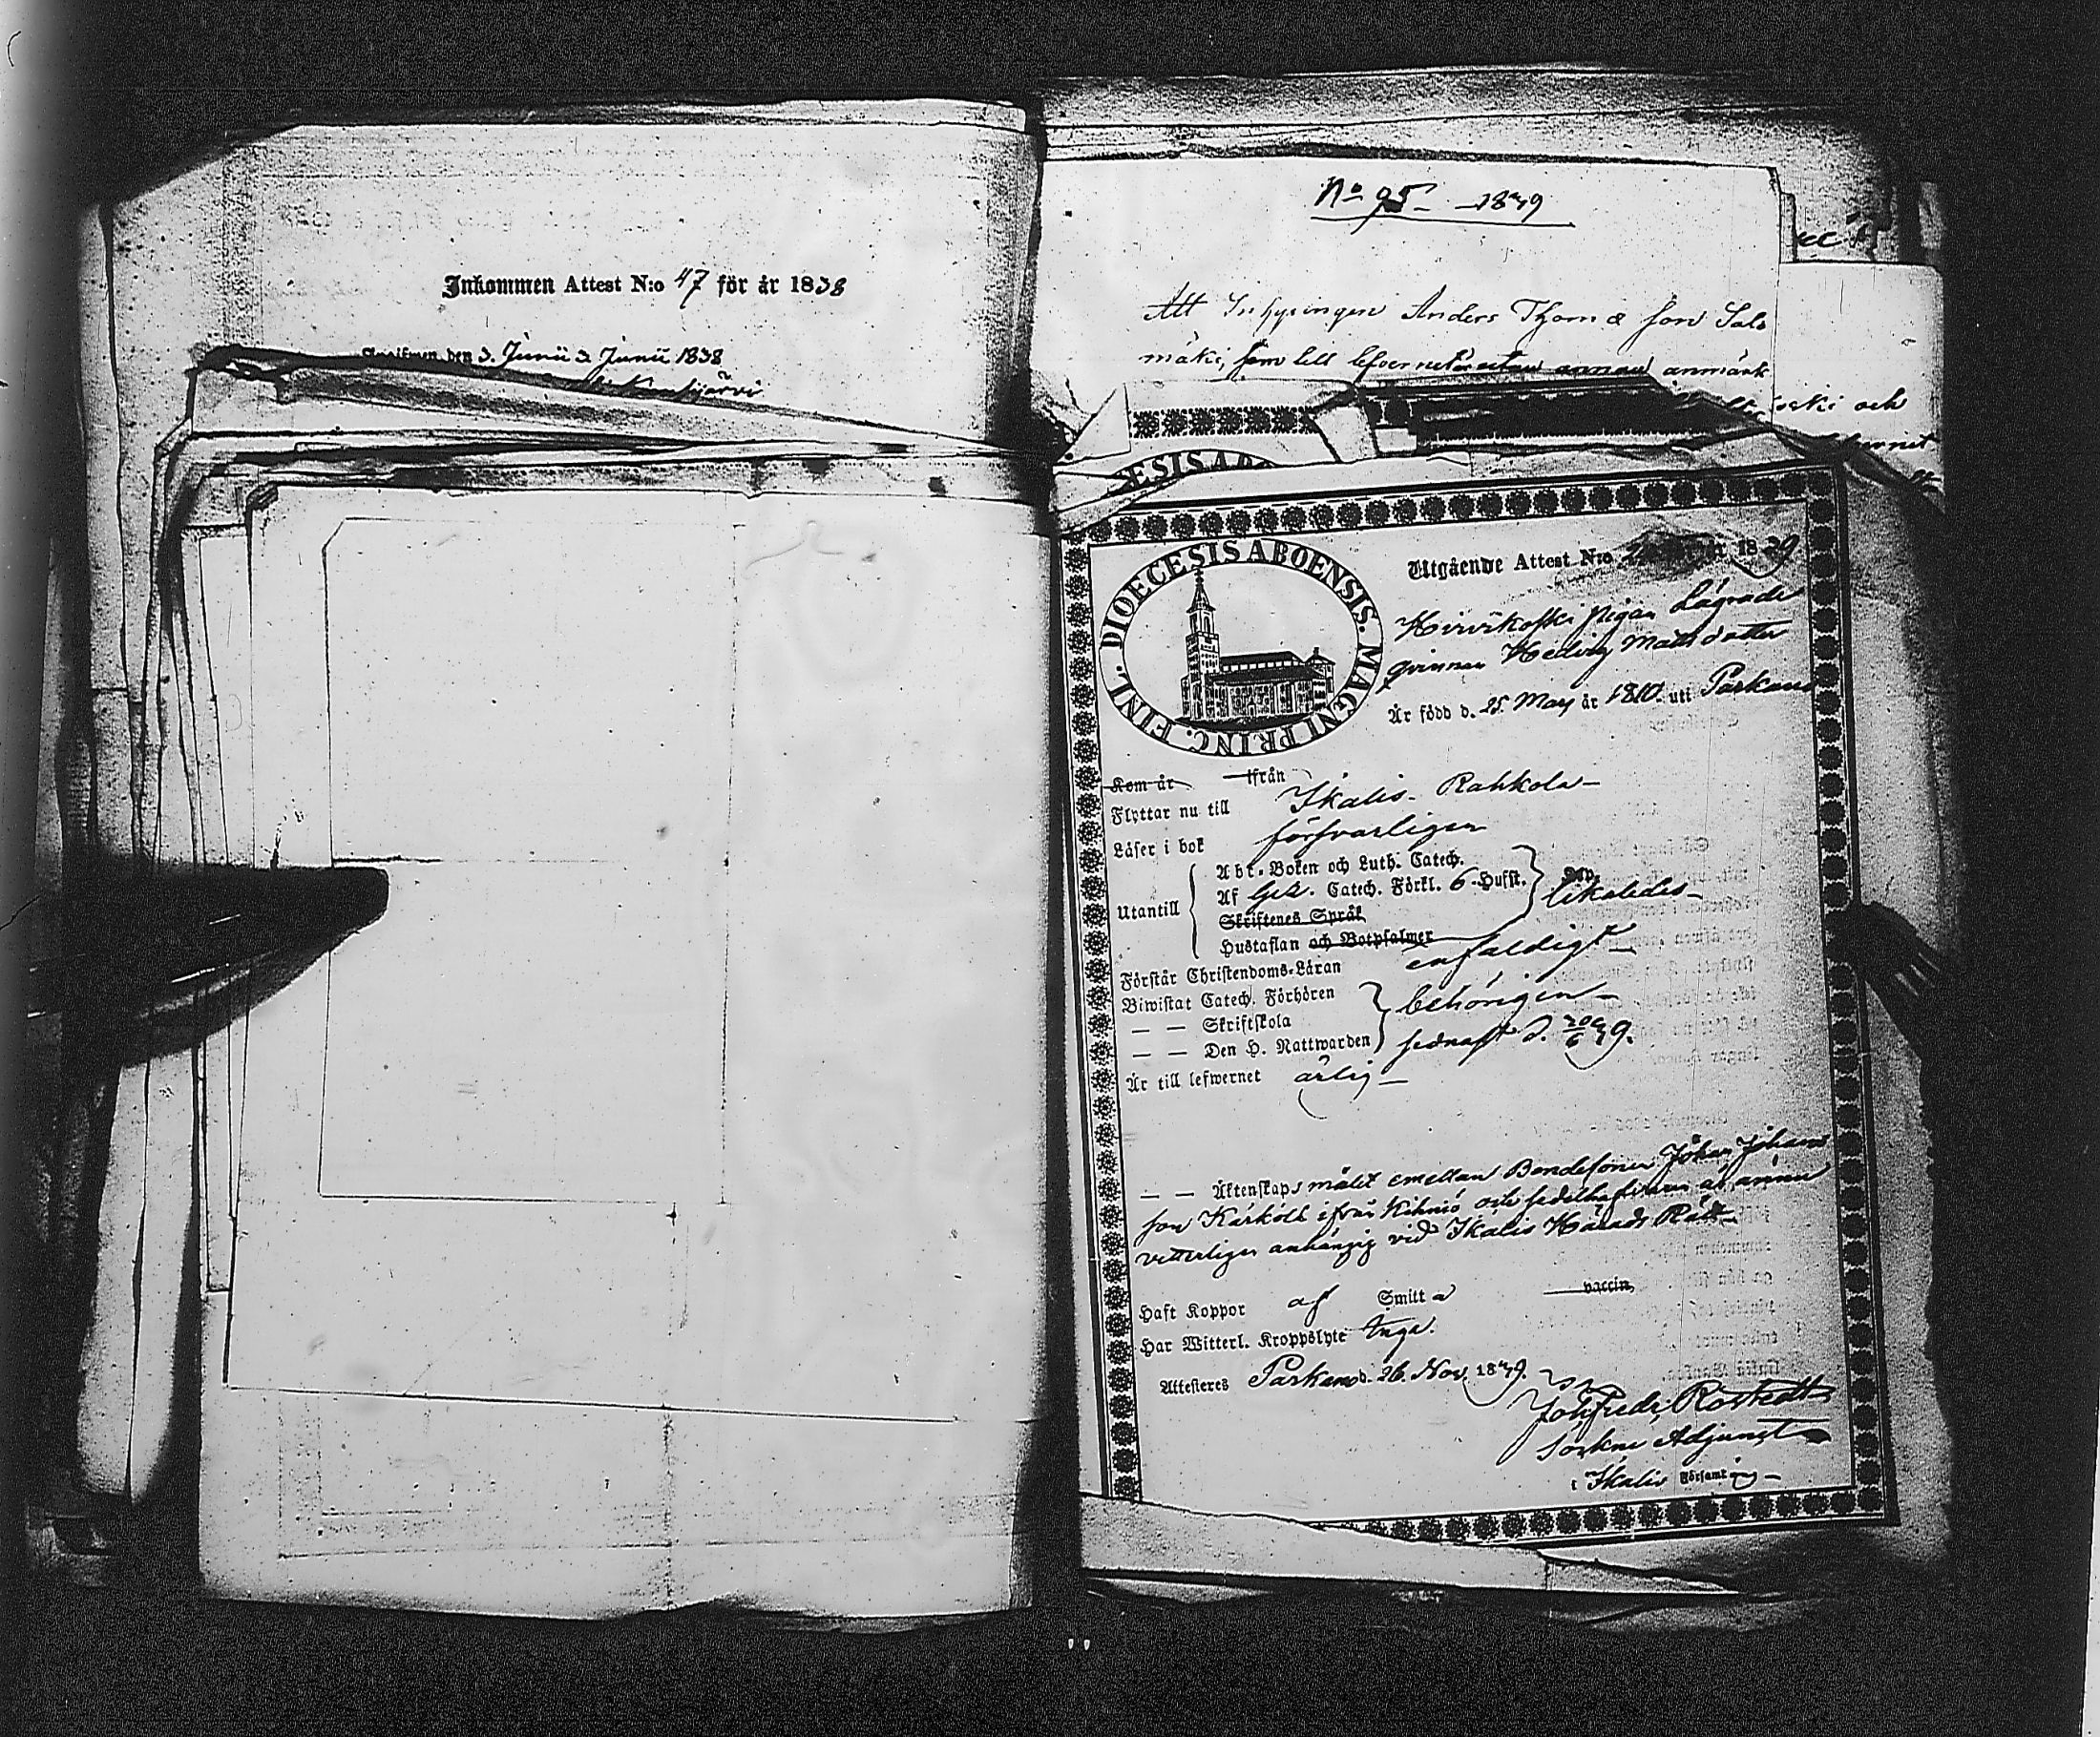 Inkommen Attest N:o 47 för år 1838
den 3. Junii 1838
No 95 1839
Att Inhysingen Anders Thomæ son Salo
mäki, som till lefvernet anmärk
koski och
ESIS A
DIOECESIS ABOENSIS. MAGNI PRINC. FINL.
Utgående Attest N:o 1839
Hirvikoski pigan Lägrade
qvinnan Hedvig Mattsdotter
Är född d. 25 Maij år 1810. uti Parkano
Kom år ifrån
Flyttar nu till Ikalis - Rahkola -
Läser i bok försvarligen
Utantill
Abc-Boken och Luth. Catech.
Af Gez. Catech. Förkl. 6 Hufst.
Skriftenes Språk
Hustaflan och Botpsalmer
likaledes -
Förstår Christendoms-Läran enfaldigt -
Biwistat Catech. Förhören
— — Skriftskola
— — Den H. Nattwarden
behörigen -
sednast d. 20/6 39.
Är till lefwernet ärlig -
— — Äktenskaps målet emellan Bondesonen Johan Johans
son Kärkölä ifrån Kihniö och sedelhafverinnan är ännu
vitterligen anhängig vid Ikalis Härads Rätt -
Haft Koppor af Smitta vaccin.
Har Witterl. Kroppslyte Inga.
Attesteras Parkano d. 26. Nov. 1839.
Joh. Fredr. Rostedt
Sockne Adjunct
i Ikalis Församling -